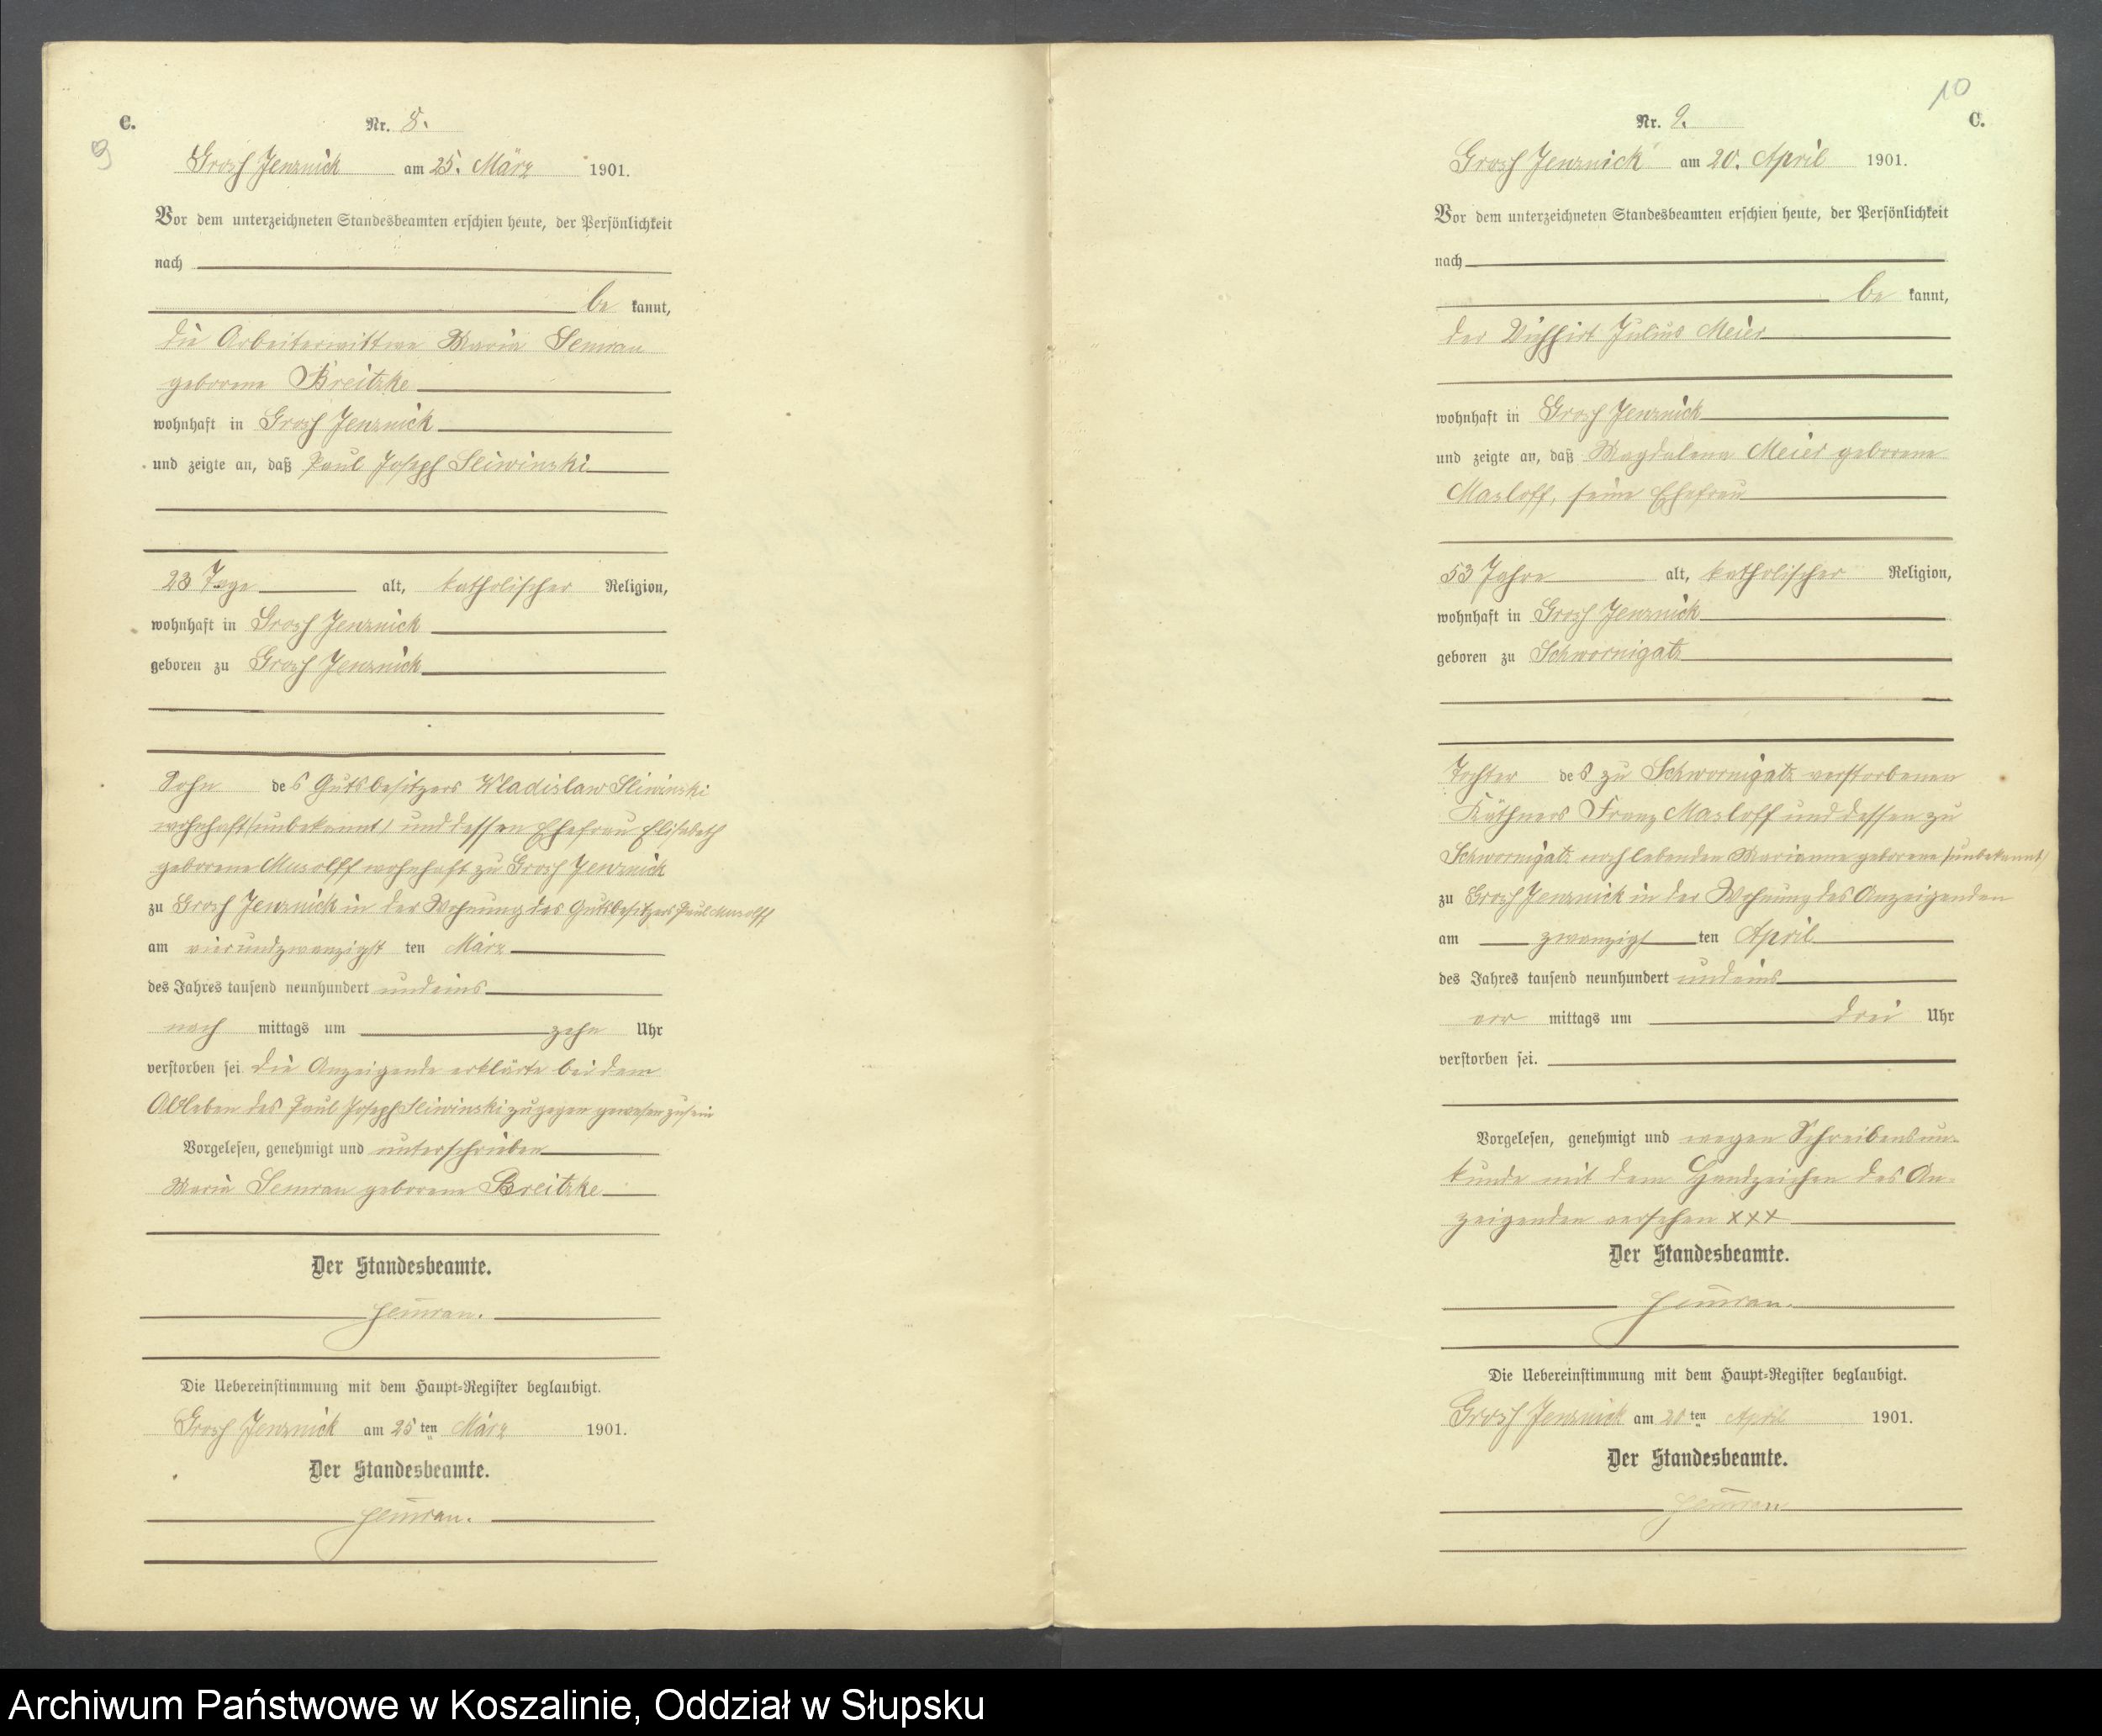 C.
Nr. 8.
9
Gross Jenznick am 25. März 1901.
Vor dem unterzeichneten Standesbeamten erschien heute, der Persönlichkeit
nach
be kannt,
die Arbeiterwittwe Maria Semrau
geborene Breitzke
wohnhaft in Gross Jenznick
und zeigte an, daß Paul Joseph Sliwinski
23 Tage alt, katholischer Religion,
wohnhaft in Gross Jenznick
geboren zu Gross Jenznick
Sohn des Gutsbesitzers Wladislaw Sliwinski
wohnhaft (unbekannt) und dessen Ehefrau Elisabeth
geborene Musolff wohnhaft zu Gross Jenznick
zu Gross Jenznick in der Wohnung des Gutsbesitzers Paul Musolff
am vierundzwanzigst ten März
des Jahres tausend neunhundert undeins
nach mittags um zehn Uhr
verstorben sei die Anzeigende erklärte bei dem
Ableben des Paul Joseph Sliwinski zugegen gewesen zu sein
Vorgelesen, genehmigt und unterschrieben
Maria Semrau geborene Breitzke
Der Standesbeamte.
Semrau.
Die Uebereinstimmung mit dem Haupt-Register beglaubigt.
Gross Jenznick am 25 ten März 1901.
Der Standesbeamte.
Semrau.
10
Nr. 9.
C.
Gross Jenznick am 20. April 1901.
Vor dem unterzeichneten Standesbeamten erschien heute, der Persönlichkeit
nach
be kannt,
der Viehhirt Julius Meier
wohnhaft in Gross Jenznick
und zeigte an, daß Magdalena Meier geborene
Masloff, seine Ehefrau
53 Jahre alt, katholischer Religion,
wohnhaft in Gross Jenznick
geboren zu Schwornigatz
Tochter des zu Schwornigatz verstorbenen
Käthners Franz Masloff und dessen zu
Schwornigatz noch lebenden Marianne geborene (unbekannt)
zu Gross Jenznick in der Wohnung des Anzeigenden
am zwanzigs ten April
des Jahres tausend neunhundert undeins
vor mittags um drei Uhr
verstorben sei.
Vorgelesen, genehmigt und wegen Schreibensun-
kunde mit dem Handzeichen des An-
zeigenden versehen XXX
Der Standesbeamte.
Semrau.
Die Uebereinstimmung mit dem Haupt-Register beglaubigt.
Gross Jenznick am 20 ten April 1901.
Der Standesbeamte.
Semrau
Archiwum Państwowe w Koszalinie, Oddział w Słupsku